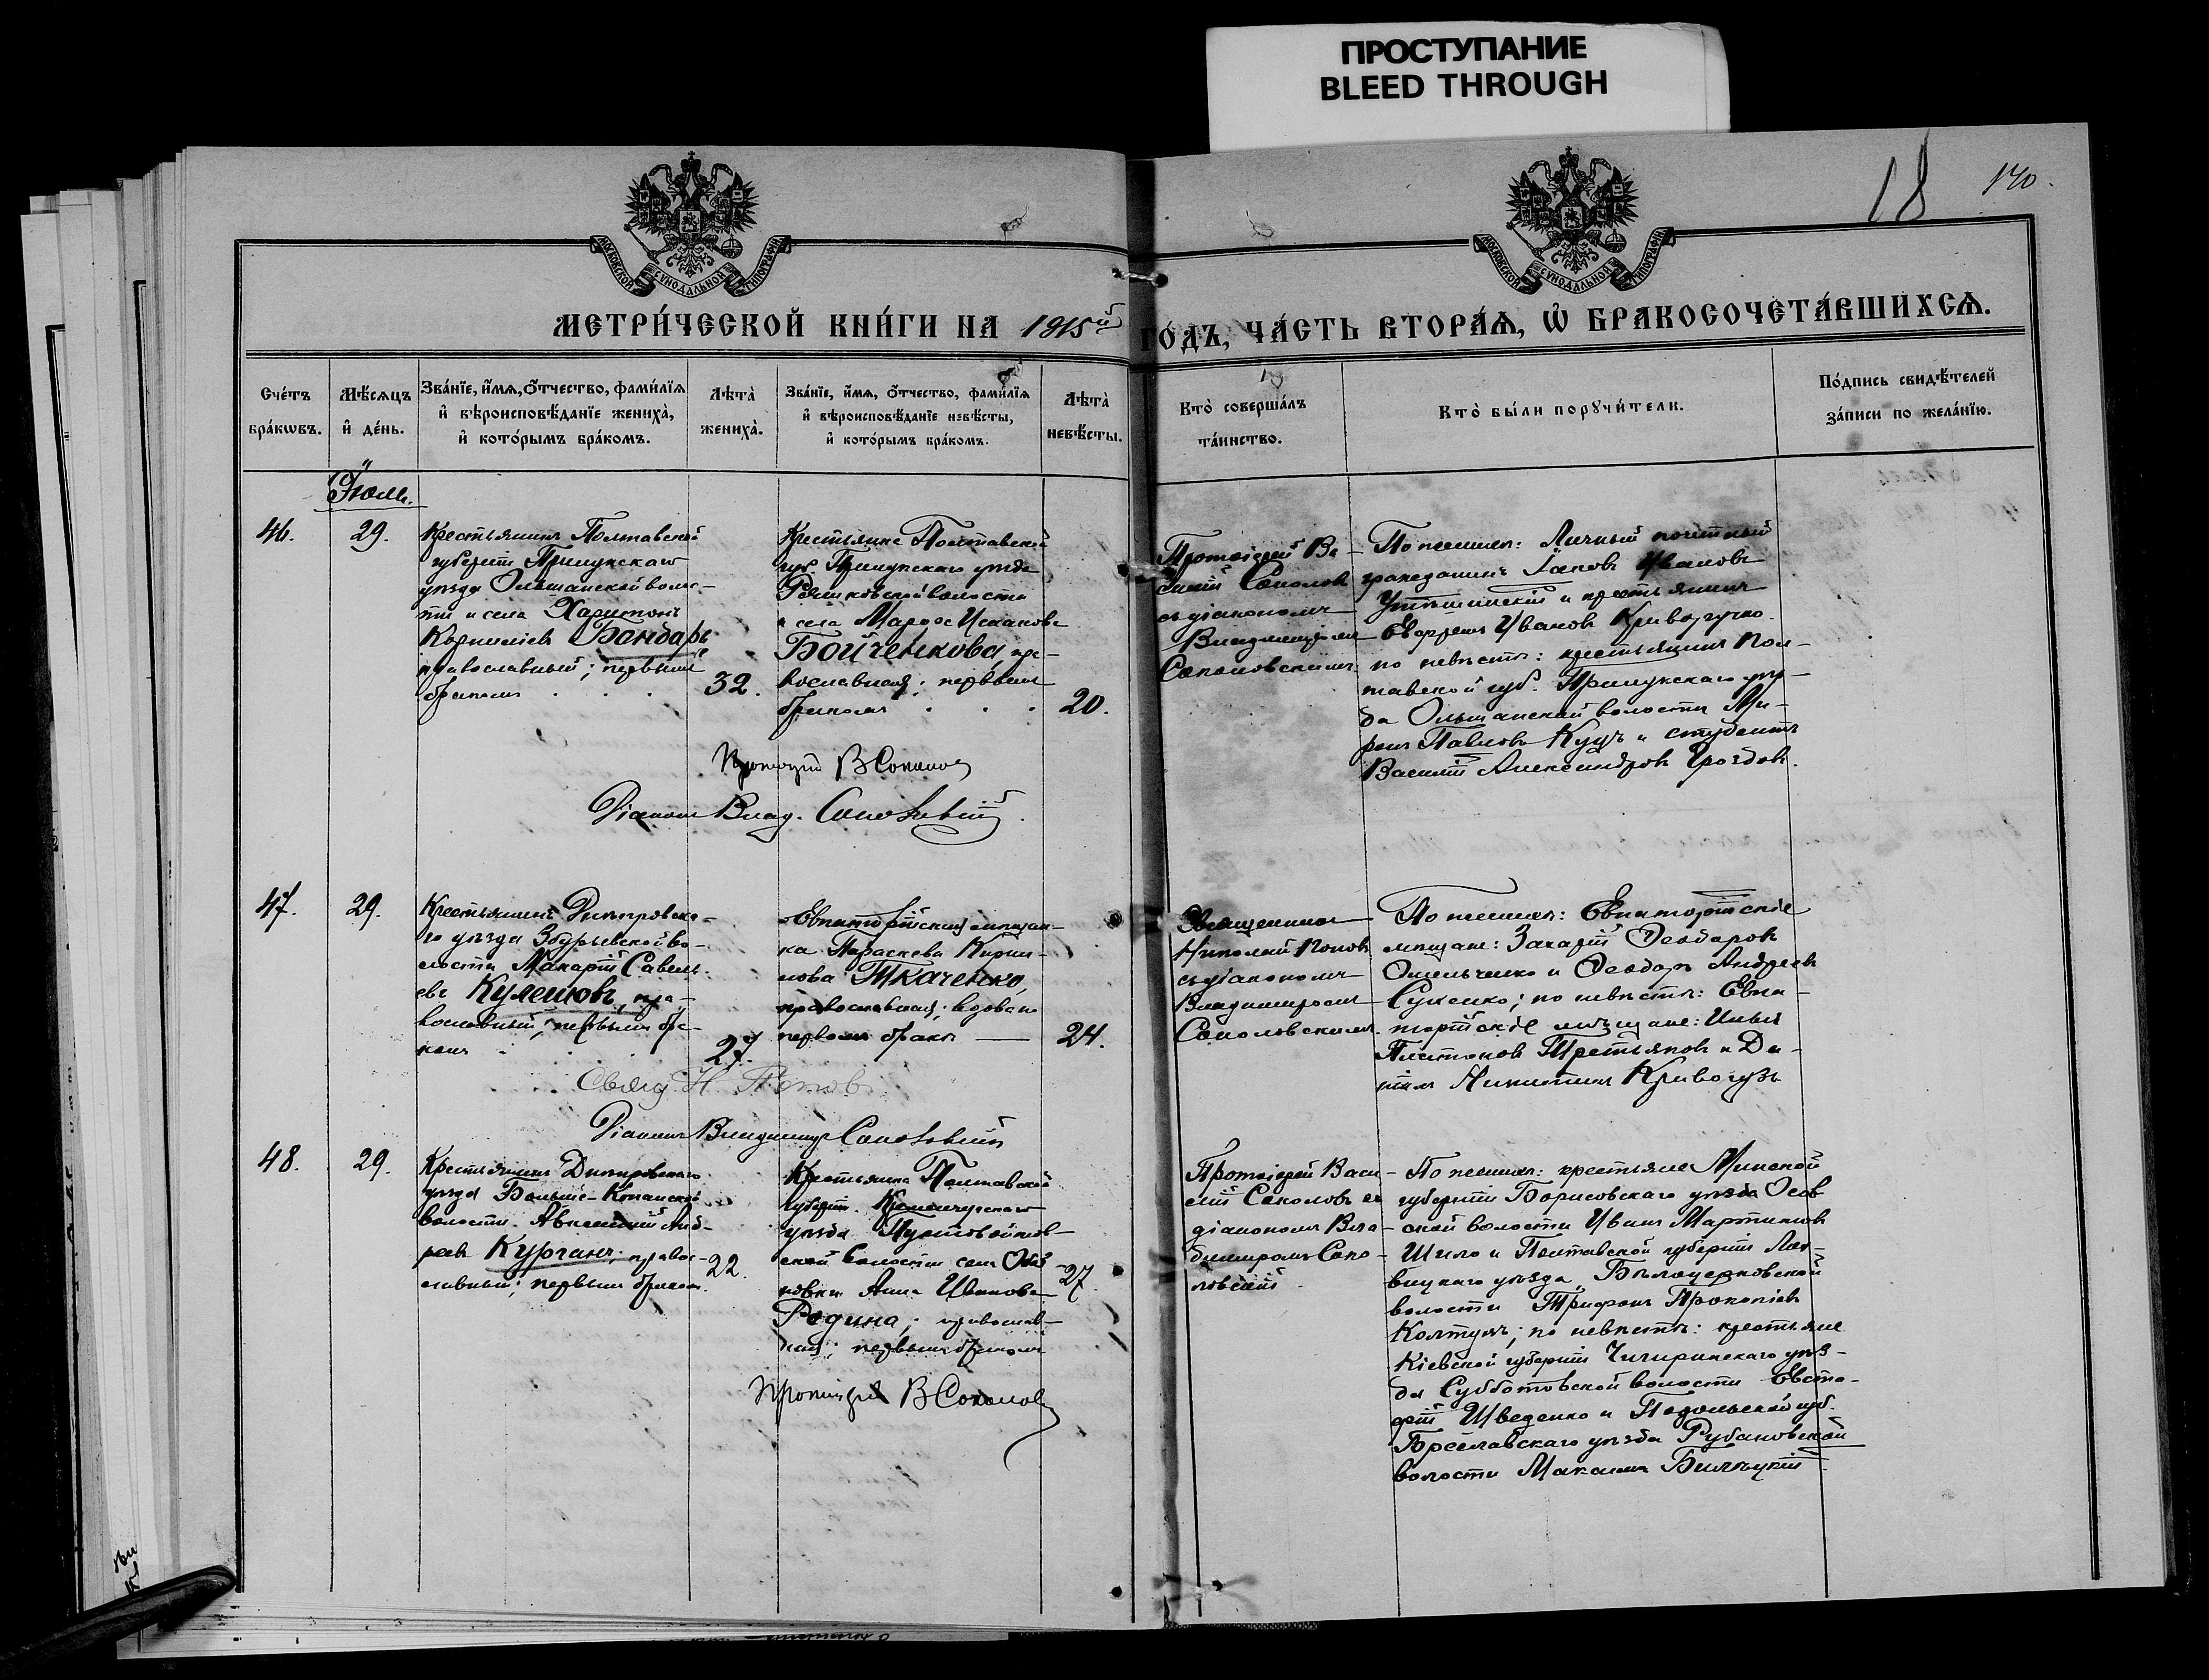 ПРОСТУПАНИЕ
BLEED THROUGH
18
170.
МОСКОВСКОЙ СѴНОДАЛЬНОЙ ТИПОГРАФІИ
МОСКОВСКОЙ СѴНОДАЛЬНОЙ ТИПОГРАФІИ
МЕТРИ́ЧЕСКОЙ КНИ́ГИ НА 1915й ГО́ДЪ, ЧА́СТЬ ВТОРА́Ѧ, Ѽ БРАКОСОЧЕТА́ВШИХСѦ.
Сче́тъ
бра́кѡвъ.
Мѣ́сѧцъ
и҆ де́нь.
Зва́нїе, и҆́мѧ, ѻ҆́тчество, фами́лїѧ
и҆ вѣроисповѣ́данїе жениха̀,
и҆ кото́рымъ бра́комъ.
Лѣта̀
жениха̀.
Зва́нїе, и҆́мѧ, ѻ҆́тчество, фами́лїѧ
и҆ вѣроисповѣ́данїе невѣ́сты,
и҆ кото́рымъ бра́комъ.
Лѣта̀
невѣ́сты.
Кто̀ соверша́лъ
та́инство.
Кто̀ бы́ли порꙋчи́тели.
По́дпись свидѣ́телей
за́писи по жела́нїю.
Іюль.
46.
29.
Крестьянинъ Полтавской
губерніи Прилукскаго
уѣзда Ольшанской волос-
ти и села Харитонъ
Корниліевъ Бондарь
православный; первымъ
бракомъ
32.
Крестьянка Полтавской
губ. Прилукскаго уѣзда
волости
и села Марѳа
Бойченкова, пра-
вославная; первымъ
бракомъ
20.
Протоіерей Ва-
силій Соколовъ
съ діакономъ
Владиміромъ
Соколовскимъ.
По женихѣ: Личный почетный
гражданинъ Іаковъ Ивановъ
и крестьянинъ
Ивановъ Криворучко.
по невѣстѣ: крестьянинъ Пол-
тавской губ. Прилукскаго уѣз-
да Ольшанской волости Ми-
ронъ Павловъ Куцъ и студентъ
Василій Александровъ Гроздовъ.
Протоіерей В Соколовъ
Діаконъ Влад. Соколовскій
47.
29.
Крестьянинъ Днѣпровска-
го уѣзда Збурьевской во-
лости Макарій Савель-
евъ Кулешовъ, пра-
вославный; первымъ бра-
комъ
27.
Евпаторійская мѣщан-
ка Параскева Кирил-
лова Ткаченко,
православная; вдова по
первомъ бракѣ
24.
Священникъ
Николай Поповъ
съ діакономъ
Владиміромъ
Соколовскимъ.
По женихѣ: Евпаторійскіе
мѣщане: Захарій Ѳеодоровъ
Омельченко и Ѳеодоръ Андреевъ
Сукенко; по невѣстѣ: Евпа-
торійскіе мѣщане: Илья
Платоновъ Третьяковъ и Да-
ніилъ Никитинъ Кривогузъ
Свящ. Н. Поповъ
Діаконъ Владиміръ Соколовскій
48.
29.
Крестьянинъ Днѣпровскаго
уѣзда Больше-Копанской
волости Авксентій Анд-
реевъ Курганъ; правос-
лавный; первымъ бракомъ.
22.
Крестьянка Полтавской
губерніи Кременчугскаго
уѣзда Пустовойтов-
ской волости села
новки Анна Иванова
Редина; православ-
ная; первымъ бракомъ
27.
Протоіерей Васи-
лій Соколовъ съ
діакономъ Вла-
диміромъ Соко-
ловскій.
По женихѣ: крестьяне Минской
губерніи Борисовскаго уѣзда Осов
ской волости Иванъ Мартиновъ
Шило и Полтавской губерніи Лох-
вицкаго уѣзда Бѣлоцерковской
волости Трифонъ Прокопіевъ
Колтунъ; по невѣстѣ: крестьяне
Кіевской губерніи Чигиринскаго уѣз-
да Субботовской волости Евста-
фій Шведенко и Подольской губ.
Брацлавскаго уѣзда Рубановской
волости Максимъ Билецкій.
Протоіерей В Соколовъ